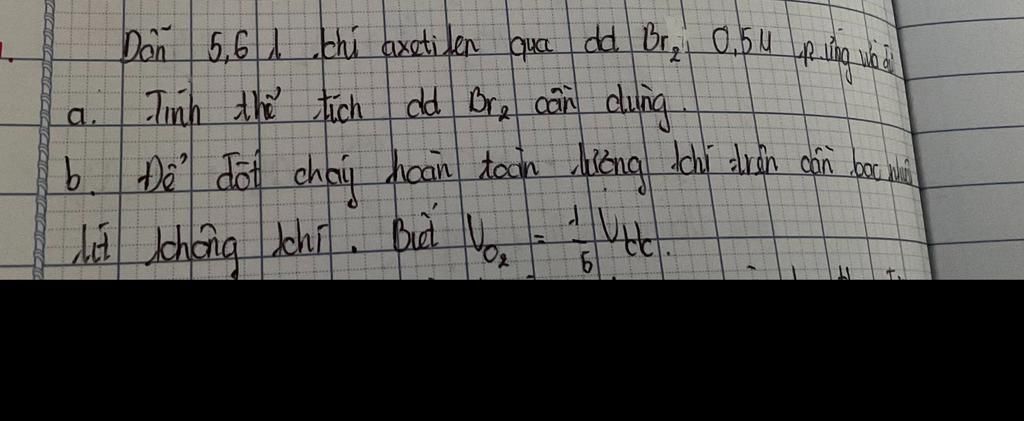 Dẫn 5,6 l khí axetilen qua dd Br₂ 0,5M p.ứng vừa đủ
a. Tính thể tích dd Br₂ cần dùng.
b. Để đốt cháy hoàn toàn lượng khí trên cần bao nhiêu
lít không khí. Biết V_O₂ = 1/5 V_kk.